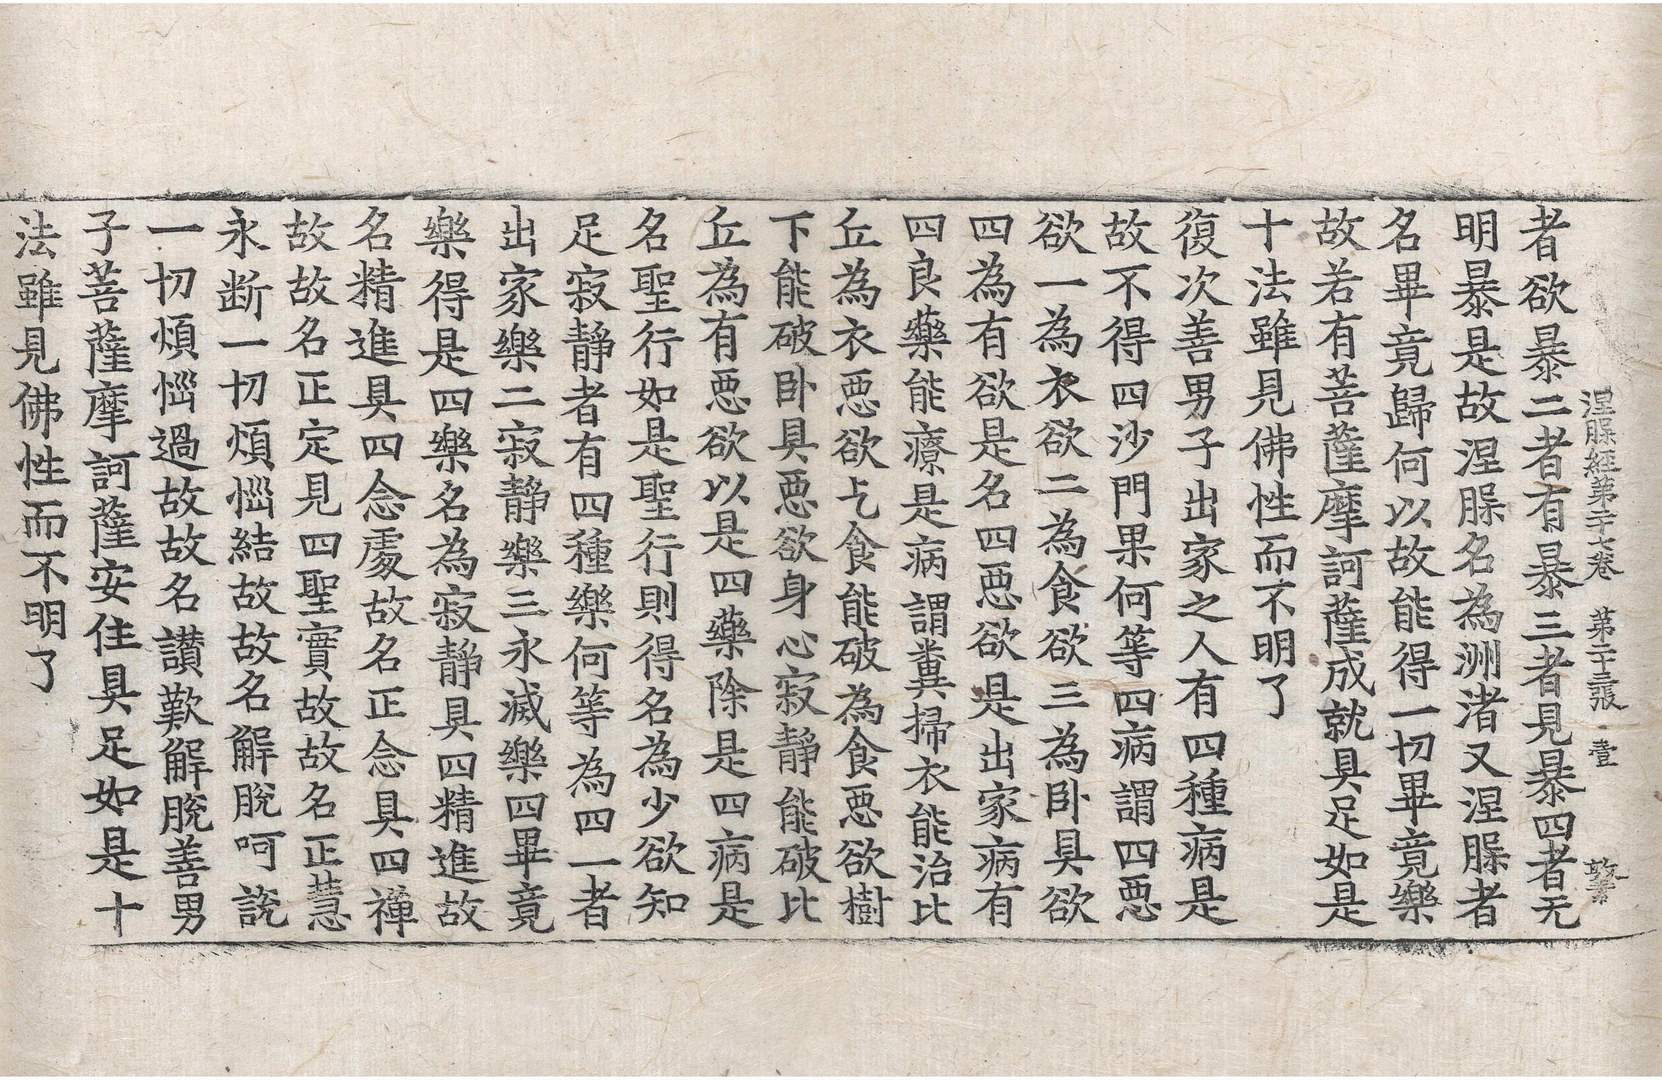 涅槃經第二十七卷 第二十三張 壹
者欲暴二者有暴三者見暴四者无
明暴是故涅槃名為洲渚又涅槃者
名畢竟歸何以故能得一切畢竟樂
故若有菩薩摩訶薩成就具足如是
十法雖見佛性而不明了
復次善男子出家之人有四種病是
故不得四沙門果何等四病謂四惡
欲一為衣欲二為食欲三為卧具欲
四為有欲是名四惡欲是出家病有
四良藥能療是病謂糞掃衣能治比
丘為衣惡欲乞食能破為食惡欲樹
下能破卧具惡欲身心寂靜能破比
丘為有惡欲以是四藥除是四病是
名聖行如是聖行則得名為少欲知
足寂靜者有四種樂何等為四一者
出家樂二寂靜樂三永滅樂四畢竟
樂得是四樂名為寂靜具四精進故
名精進具四念處故名正念具四禪
故故名正定見四聖實故故名正慧
永断一切煩惱結故故名解脫呵說
一切煩惱過故故名讚歎解脫善男
子菩薩摩訶薩安住具足如是十
法雖見佛性而不明了